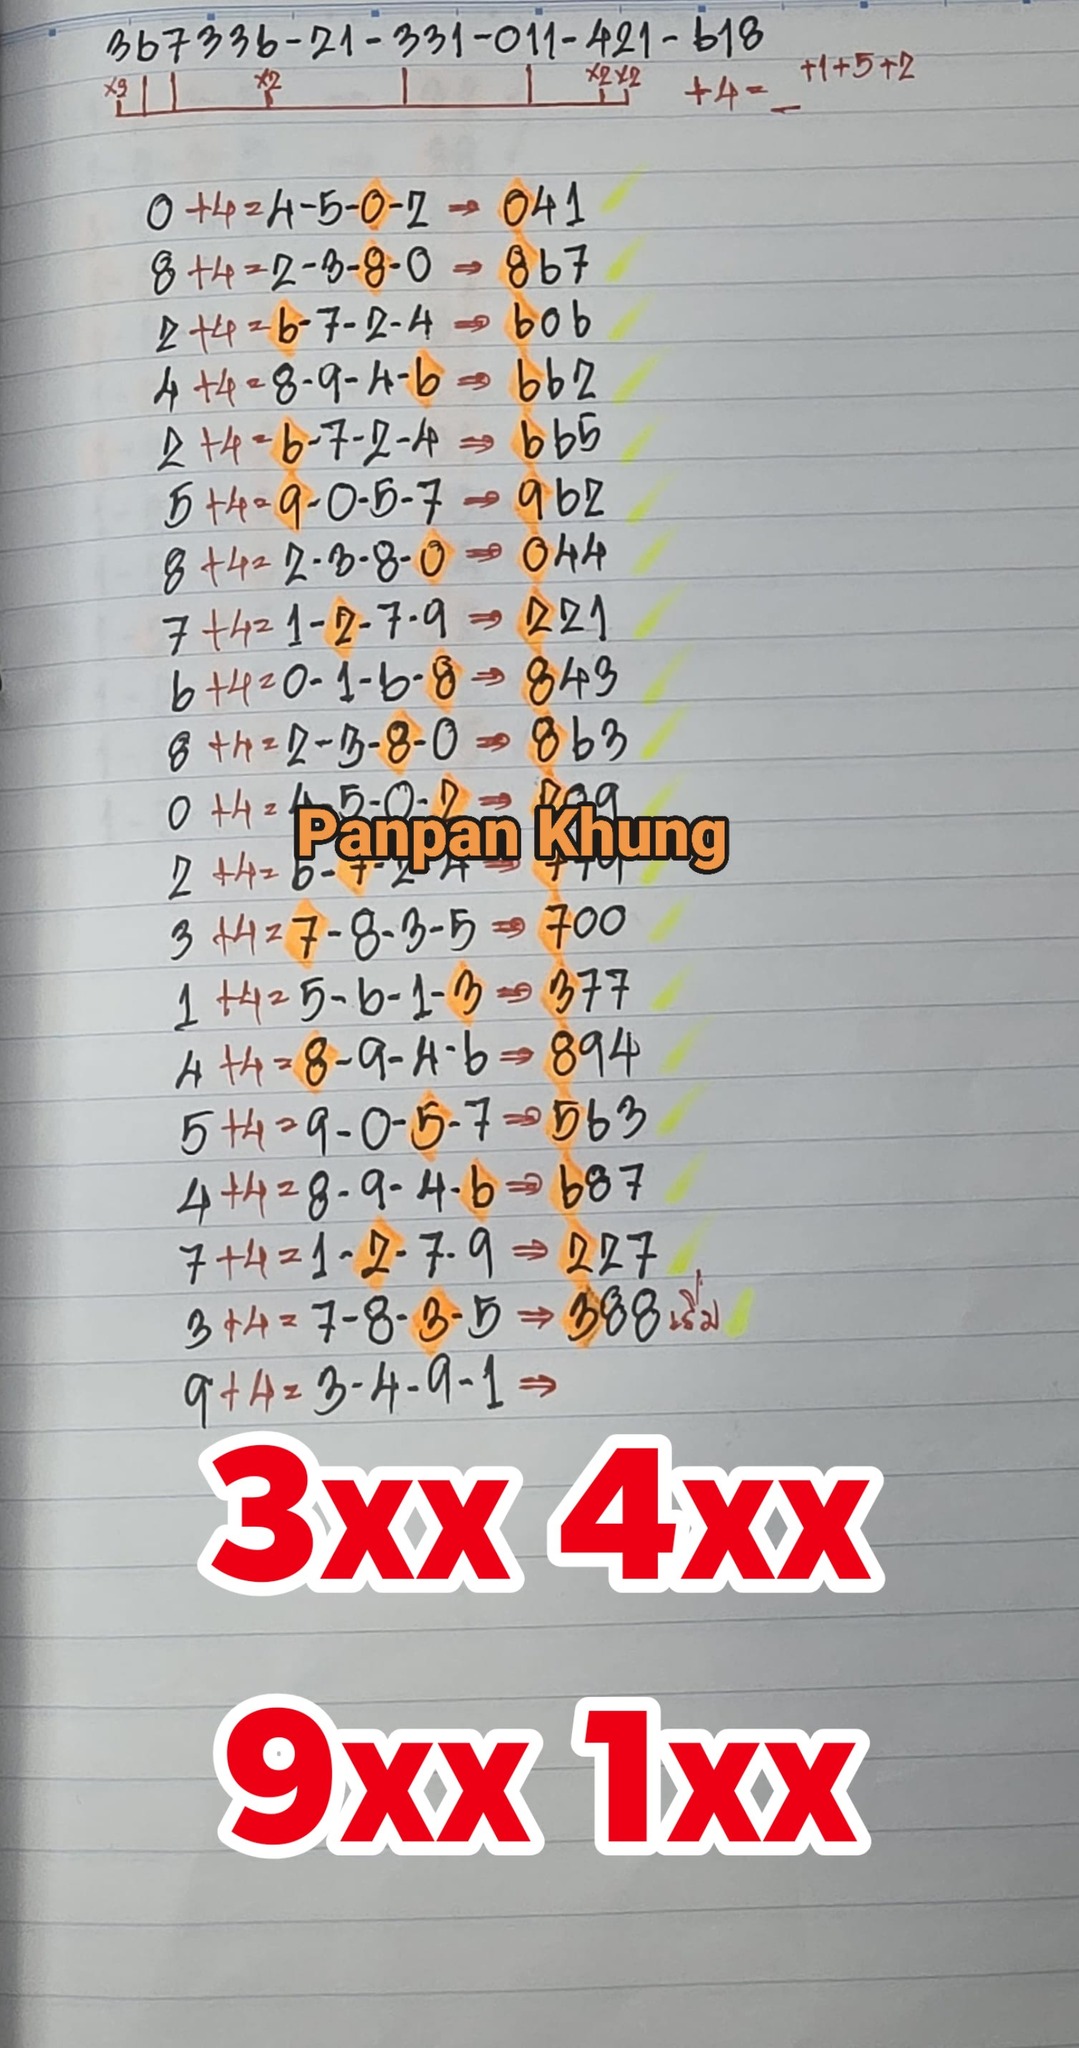 367336-21-331-011-421-618
x9 x2 x2 x2 +4= _ +1+5+2
0+4=4-5-0-2 ⇒ 041
8+4=2-3-8-0 ⇒ 867
2+4=6-7-2-4 ⇒ 606
4+4=8-9-4-6 ⇒ 662
2+4=6-7-2-4 ⇒ 665
5+4=9-0-5-7 ⇒ 962
8+4=2-3-8-0 ⇒ 044
7+4=1-2-7-9 ⇒ 221
6+4=0-1-6-8 ⇒ 843
8+4=2-3-8-0 ⇒ 863
0+4=4-5-0-2 ⇒ 209
Panpan Khung
2+4=6-7-2-4 ⇒
3+4=7-8-3-5 ⇒ 700
1+4=5-6-1-3 ⇒ 377
4+4=8-9-4-6 ⇒ 894
5+4=9-0-5-7 ⇒ 563
4+4=8-9-4-6 ⇒ 687
7+4=1-2-7-9 ⇒ 227
3+4=7-8-3-5 ⇒ 388 เริ่ม
9+4=3-4-9-1 ⇒
3xx 4xx
9xx 1xx